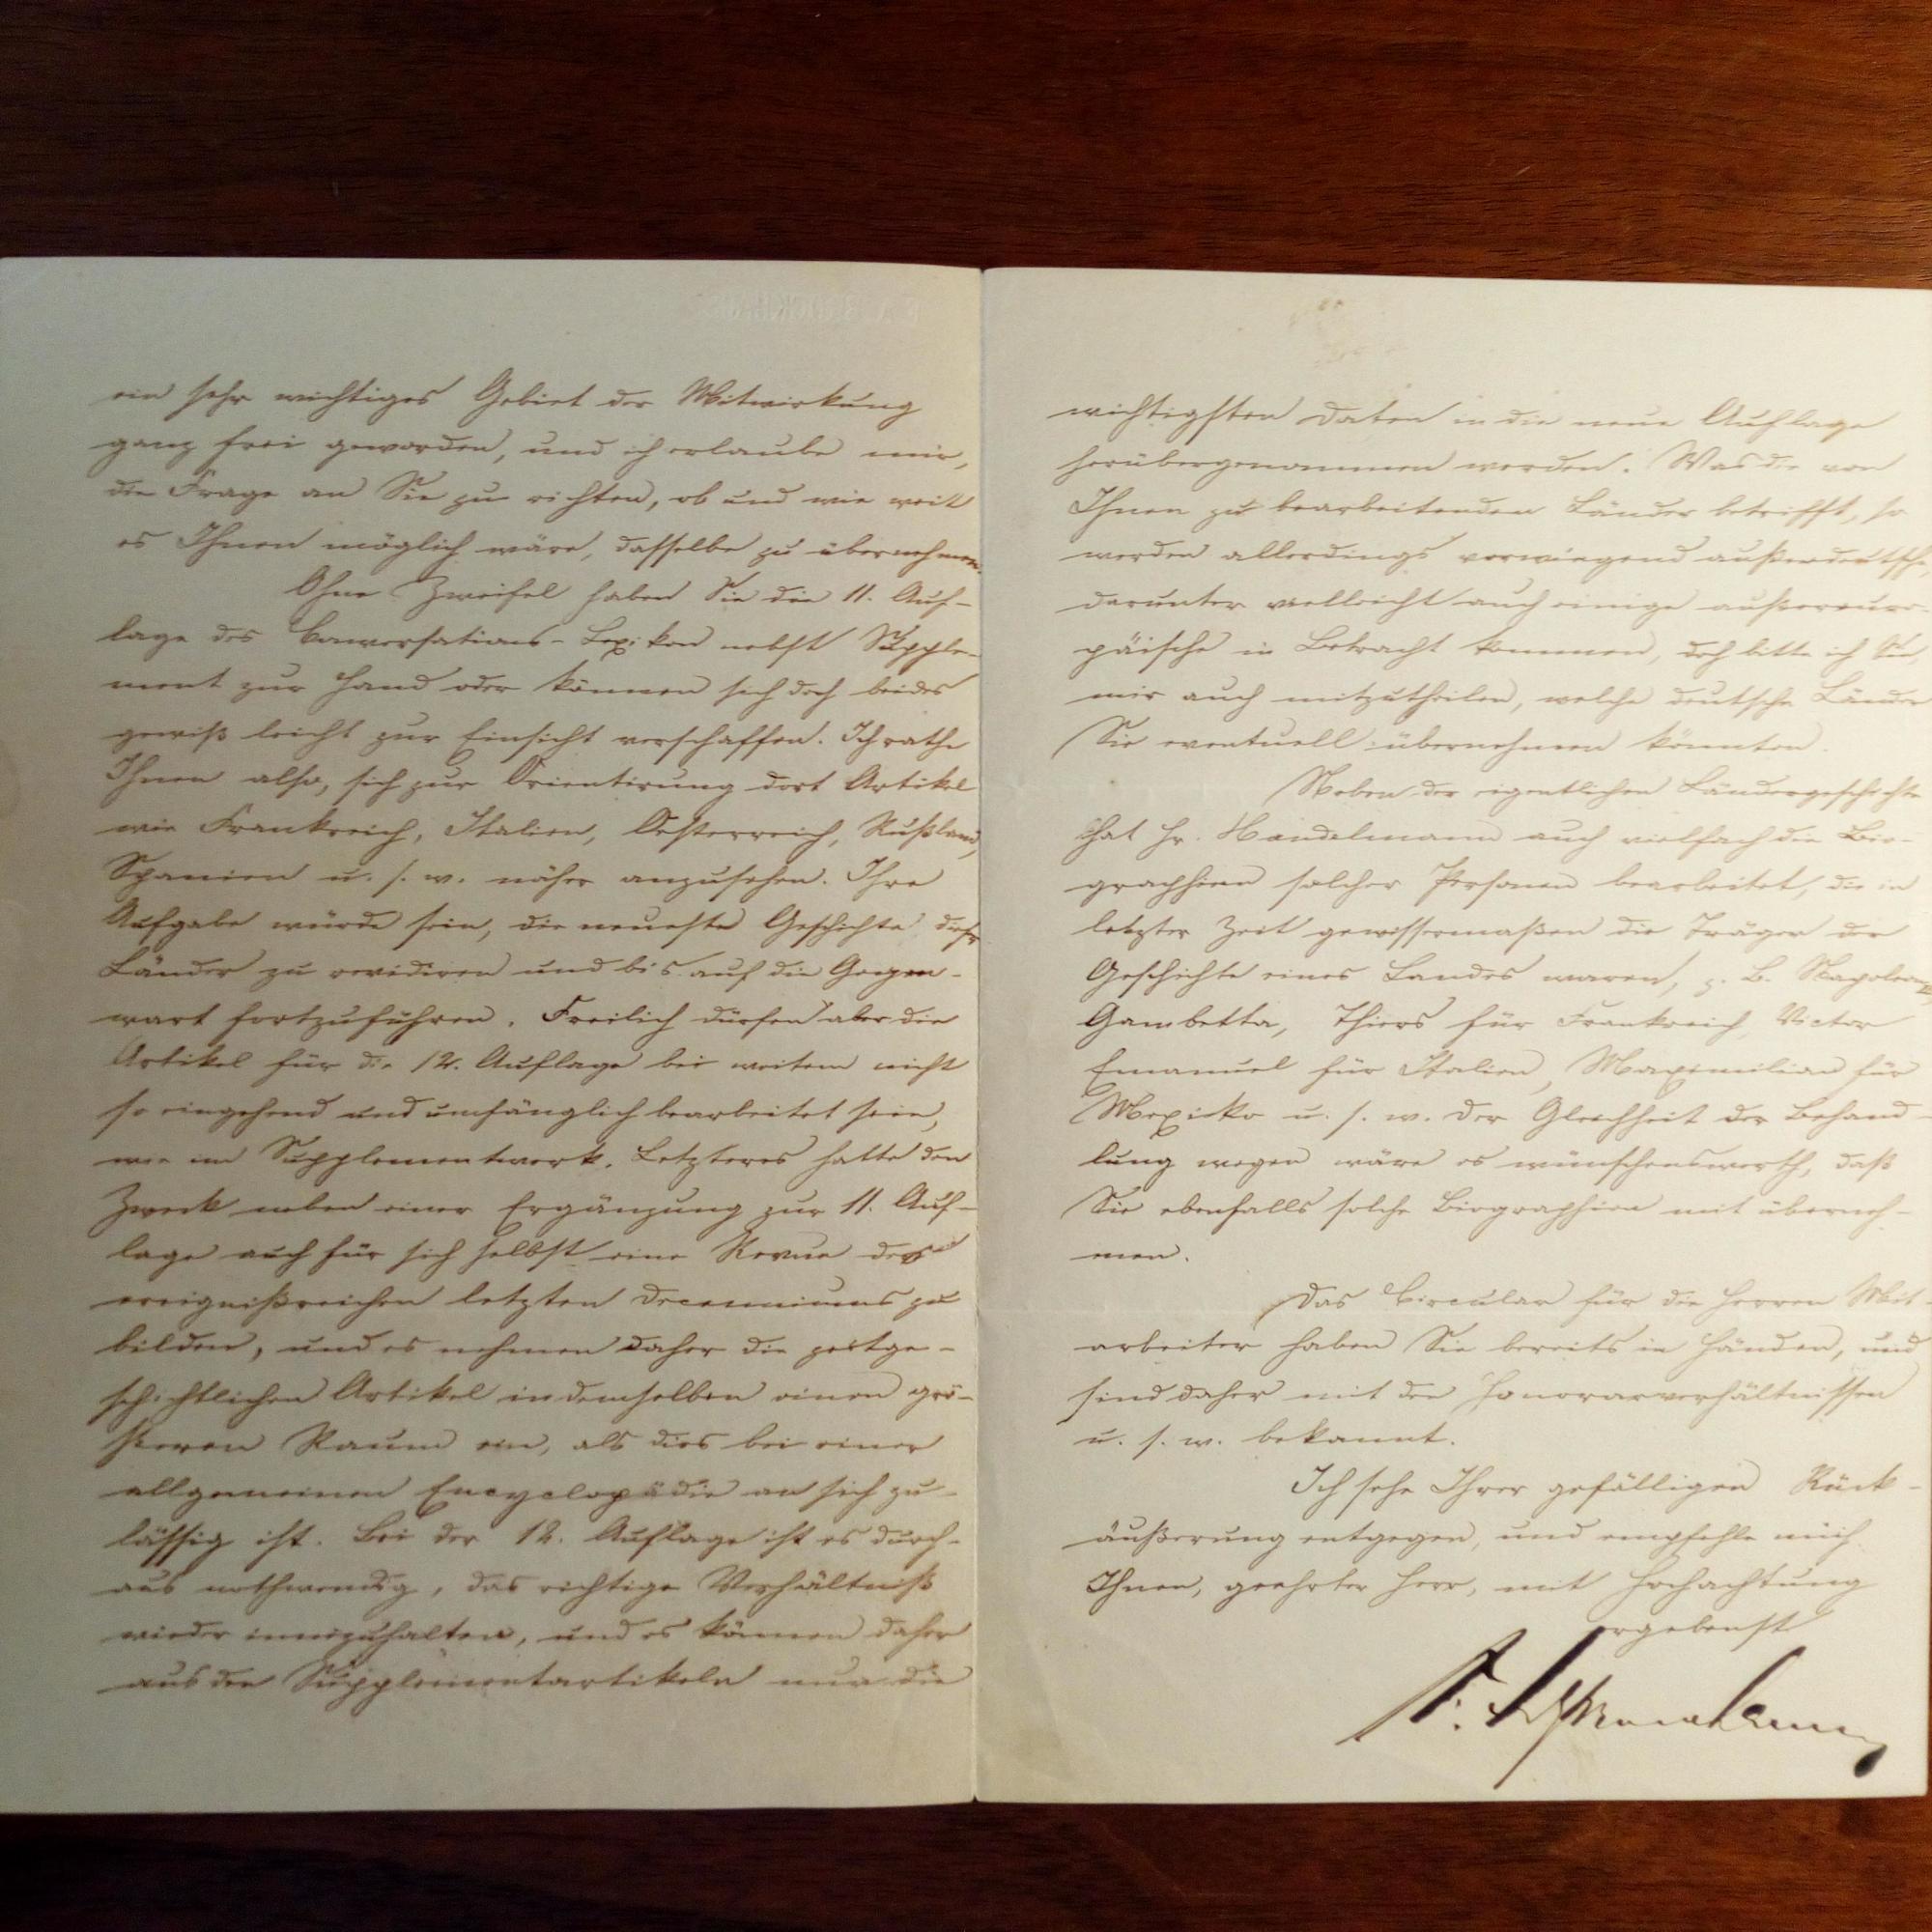 F. A. BROCKHAUS
ein sehr wichtiges Gebiet der Mitwirkung
ganz frei geworden, und ich erlaube mir,
die Frage an Sie zu richten, ob und wie weit
es Ihnen möglich wäre, dasselbe zu übernehmen.
Ohne Zweifel haben Sie die 11. Auf-
lage des Conversations-Lexikon nebst Supple-
ment zur Hand oder können sich doch beides
gewiß leicht zur Einsicht verschaffen. Ich rathe
Ihnen also, sich zur Orientirung dort Artikel
wie Frankreich, Italien, Oesterreich, Rußland,
Spanien u. s. w. näher anzusehen. Ihre
Aufgabe würde sein, die neueste Geschichte dieser
Länder zu revidiren und bis auf die Gegen-
wart fortzuführen. Freilich dürfen aber die
Artikel für die 12. Auflage bei weitem nicht
so eingehend und umfänglich bearbeitet sein,
wie im Supplementwerk. Letzteres hatte den
Zweck neben einer Ergänzung zur 11. Auf-
lage auch für sich selbst eine Revue des
ereignißreichen letzten Decenniums zu
bilden, und es nehmen daher die zeitge-
schichtlichen Artikel in demselben einen grö-
ßeren Raum ein, als dies bei einer
allgemeinen Encyclopädie an sich zu-
lässig ist. Bei der 12. Auflage ist es durch-
aus nothwendig, das richtige Verhältniß
wieder innezuhalten, und es können daher
aus den Supplementartikeln nur die
wichtigsten Daten in die neue Auflage
herübergenommen werden. Was die von
Ihnen zu bearbeitenden Länder betrifft, so
werden allerdings vorwiegend außerdeutsche,
darunter vielleicht auch einige außereuro-
päische in Betracht kommen, doch bitte ich Sie,
mir auch mitzutheilen, welche deutsche Länder
Sie eventuell übernehmen könnten.
Neben der eigentlichen Ländergeschichte
hat Hr. Handelmann auch vielfach die Bio-
graphien solcher Personen bearbeitet, die in
letzter Zeit gewissermaßen die Träger der
Geschichte eines Landes waren, z. B. Napoleon III
Gambetta, Thiers für Frankreich, Victor
Emanuel für Italien, Maximilian für
Mexiko u. s. w. Der Gleichheit der Behand-
lung wegen wäre es wünschenswerth, daß
Sie ebenfalls solche Biographien mit überneh-
men.
Das Circular für die Herren Mit-
arbeiter haben Sie bereits in Händen, und
sind daher mit den Honorarverhältnissen
u. s. w. bekannt.
Ich sehe Ihrer gefälligen Rück-
äußerung entgegen, und empfehle mich
Ihnen, geehrter Herr, mit Hochachtung
ergebenst